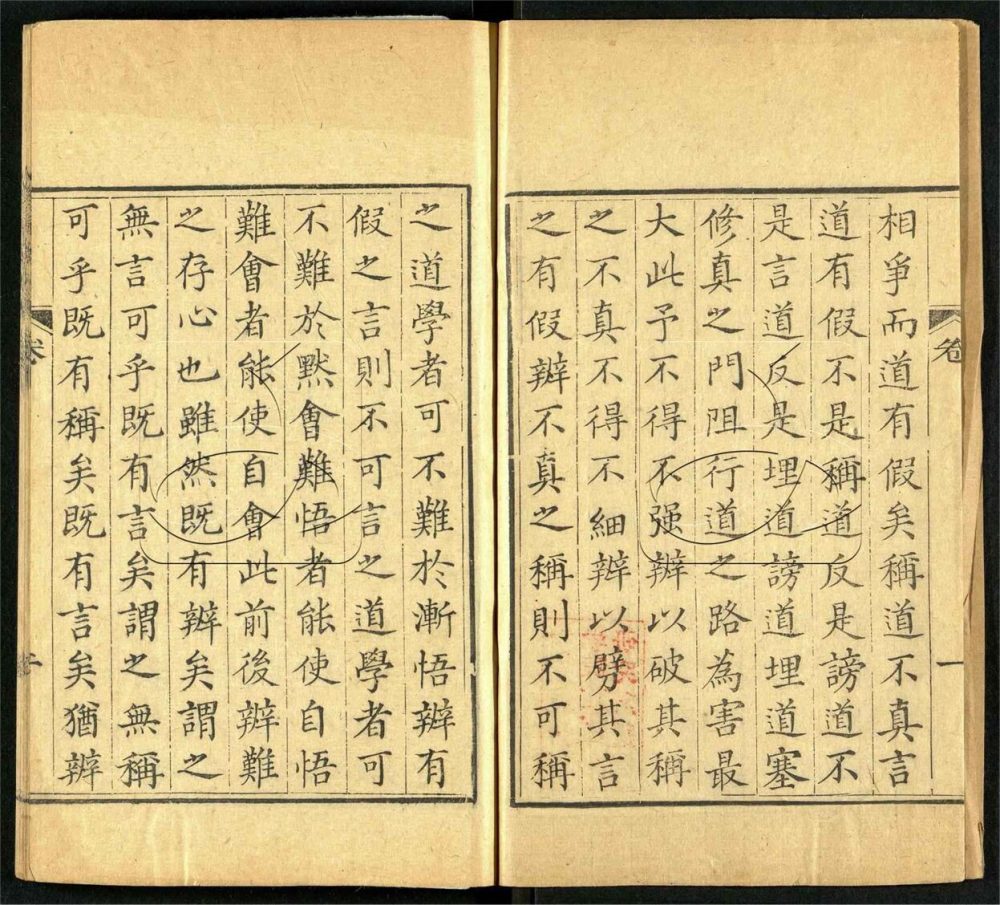 卷
一
相爭而道有假矣稱道不真言
道有假不是稱道反是謗道不
是言道反是埋道謗道埋道塞
修真之門阻行道之路為害最
大此予不得不强辨以破其稱
之不真不得不細辨以劈其言
之有假辨不真之稱則不可稱
之道學者可不難於漸悟辨有
假之言則不可言之道學者可
不難於默會難悟者能使自悟
難會者能使自會此前後辨難
之存心也雖然既有辨矣謂之
無言可乎既有言矣謂之無稱
可乎既有稱矣既有言矣猶辨